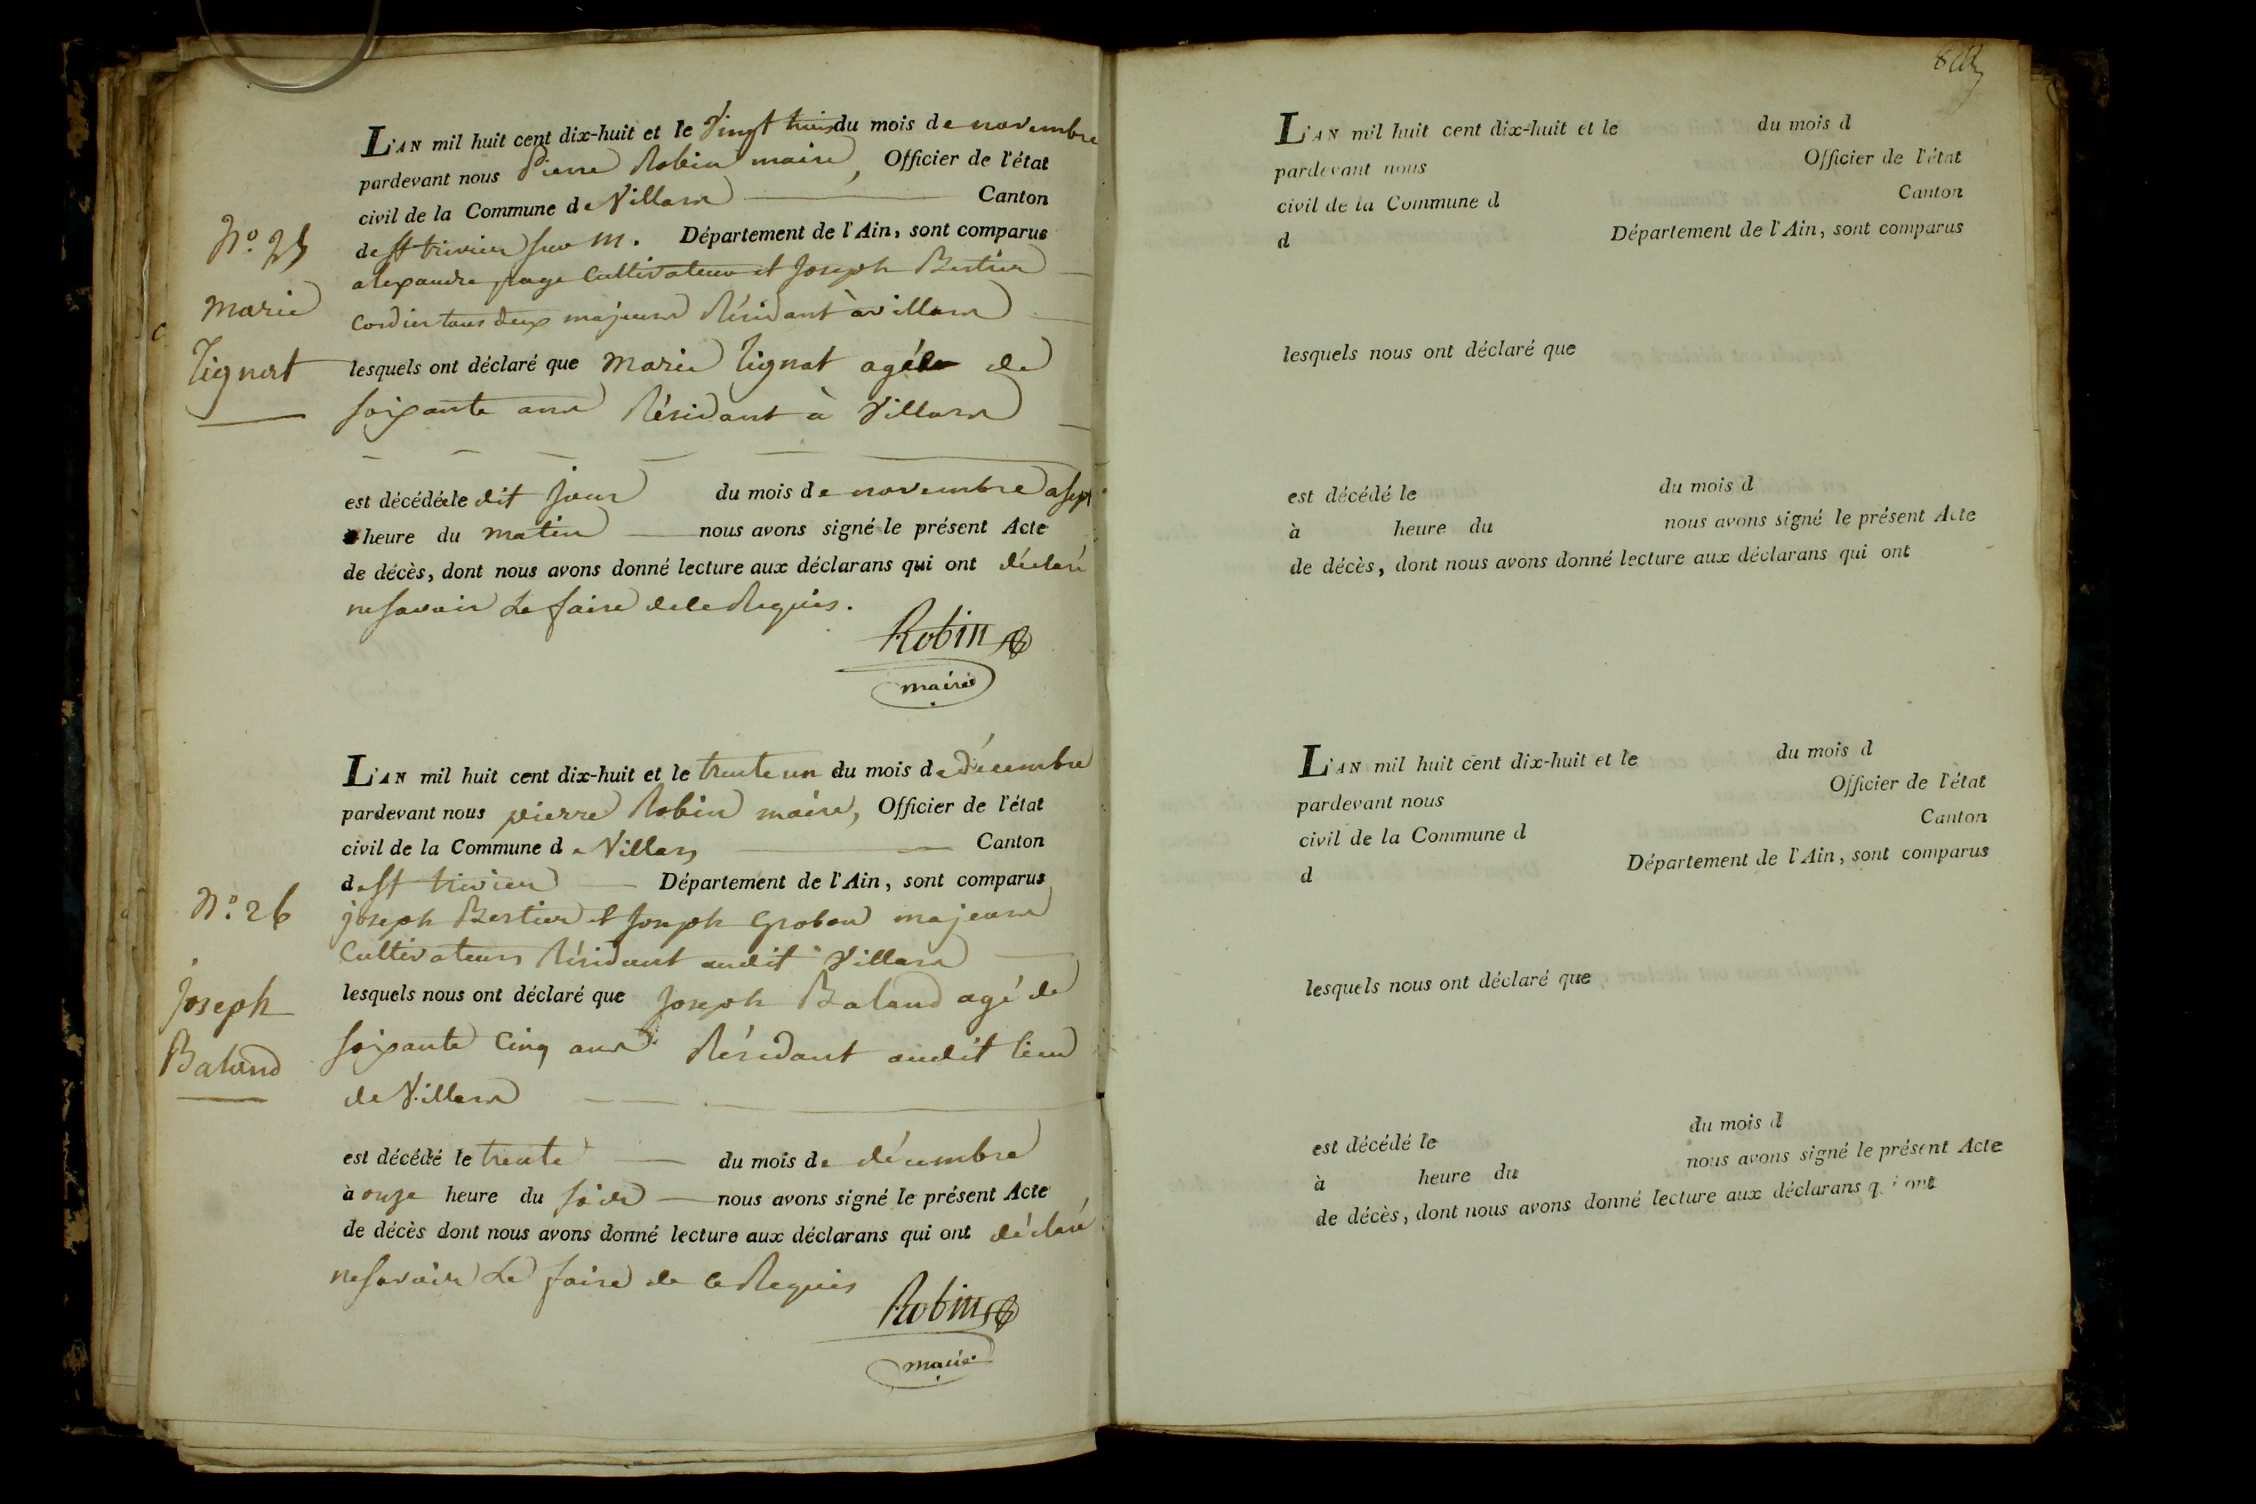 L'AN mil huit cent dix-huit et le Vingt trois du mois de novembre
pardevant nous Pierre Robin maire, Officier de l'état
civil de la Commune de Villars Canton
de St trivier sur m. Département de l'Ain, sont comparus
alexandre page Cultivateur et Joseph Bertier
Cordier tous deux majeurs Résidant à villars
N.o 25
Marie
Tignat
lesquels ont déclaré que Marie Tignat agée de
soixante ans Résidant à Villars
est décédée le dit jour du mois de novembre a sept
heure du matin nous avons signé le présent Acte
de décès, dont nous avons donné lecture aux déclarans qui ont déclaré
ne savoir le faire de ce Requis.
Robin
maire
L'AN mil huit cent dix-huit et le trente un du mois de décembre
pardevant nous pierre Robin maire, Officier de l'état
civil de la Commune de Villars Canton
de St trivier Département de l'Ain, sont comparus
joseph Bertier et Joseph Grobon majeurs
Cultivateurs Résidant audit Villars
N.o 26
Joseph
Baland
lesquels nous ont déclaré que Joseph Baland agé de
soixante Cinq ans Résidant audit lieu
de Villars
est décédé le trente du mois de décembre
à onze heure du soir nous avons signé le présent Acte
de décès dont nous avons donné lecture aux déclarans qui ont déclaré
ne savoir le faire de ce Requis
Robin
maire
L'AN mil huit cent dix-huit et le du mois d
pardevant nous Officier de l'état
civil de la Commune d Canton
d Département de l'Ain, sont comparus
lesquels nous ont déclaré que
est décédé le du mois d
à heure du nous avons signé le présent Acte
de décès, dont nous avons donné lecture aux déclarans qui ont
L'AN mil huit cent dix-huit et le du mois d
pardevant nous Officier de l'état
civil de la Commune d Canton
d Département de l'Ain, sont comparus
lesquels nous ont déclaré que
est décédé le du mois d
à heure du nous avons signé le présent Acte
de décès, dont nous avons donné lecture aux déclarans qui ont